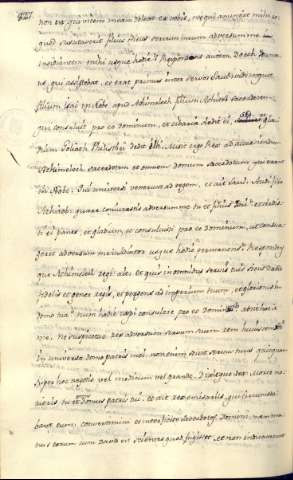 non est qui vicem meam doleat ex vobis, nec qui annuntiet mihi eo
quod suscitaverit filius meus servum meum adversum me
insidiantem mihi usque hodie. Respondens autem Doech Idumæ
us, qui assistebat, et erat primus inter servos Saul: vidi inquit
filium Isai in Nobe apud Achimelech filium Achitob sacerdotem
qui consuluit pro eo dominum, et cibaria dedit ei, sed gla
dium Goliath Philisthæi dedit illi. Misit ergo Rex ad accersiendum
Achimelech sacerdotem et omnem domum sacerdotum qui erant
in Nobe. Qui universi venerunt ad regem, et ait Saul: Audi fili
Achitob: quare coniurastis adversum me tu et filius Isai et dedisti
ei panes, et gladium, et consuluisti pro eo dominum, ut consur
geret adversum me insidiator usque hodie permanens? Respondens
que Achimelech regi ait: et quis in omnibus servis tuis sicut David
fidelis et gener regis, et pergens ad imperium tuum, et gloriosus in
domo tua? num hodie cæpi consulere pro eo dominum? absit hoc a
me, ne suspicetur rex adversum servum suum rem huiuscemodi
in universa domo patris mei: non enim scivit servus tuus quicquam
super hoc negotio vel modicum vel grande. Dixitque Rex: Morte mo
rieris tu et domus patris tui. et ait rex emissariis, qui circumsta
bant eum, convertimini et interficite sacerdotes domini, nam ma
nus eorum cum David est scientes quod fugisset, et non indicaverunt